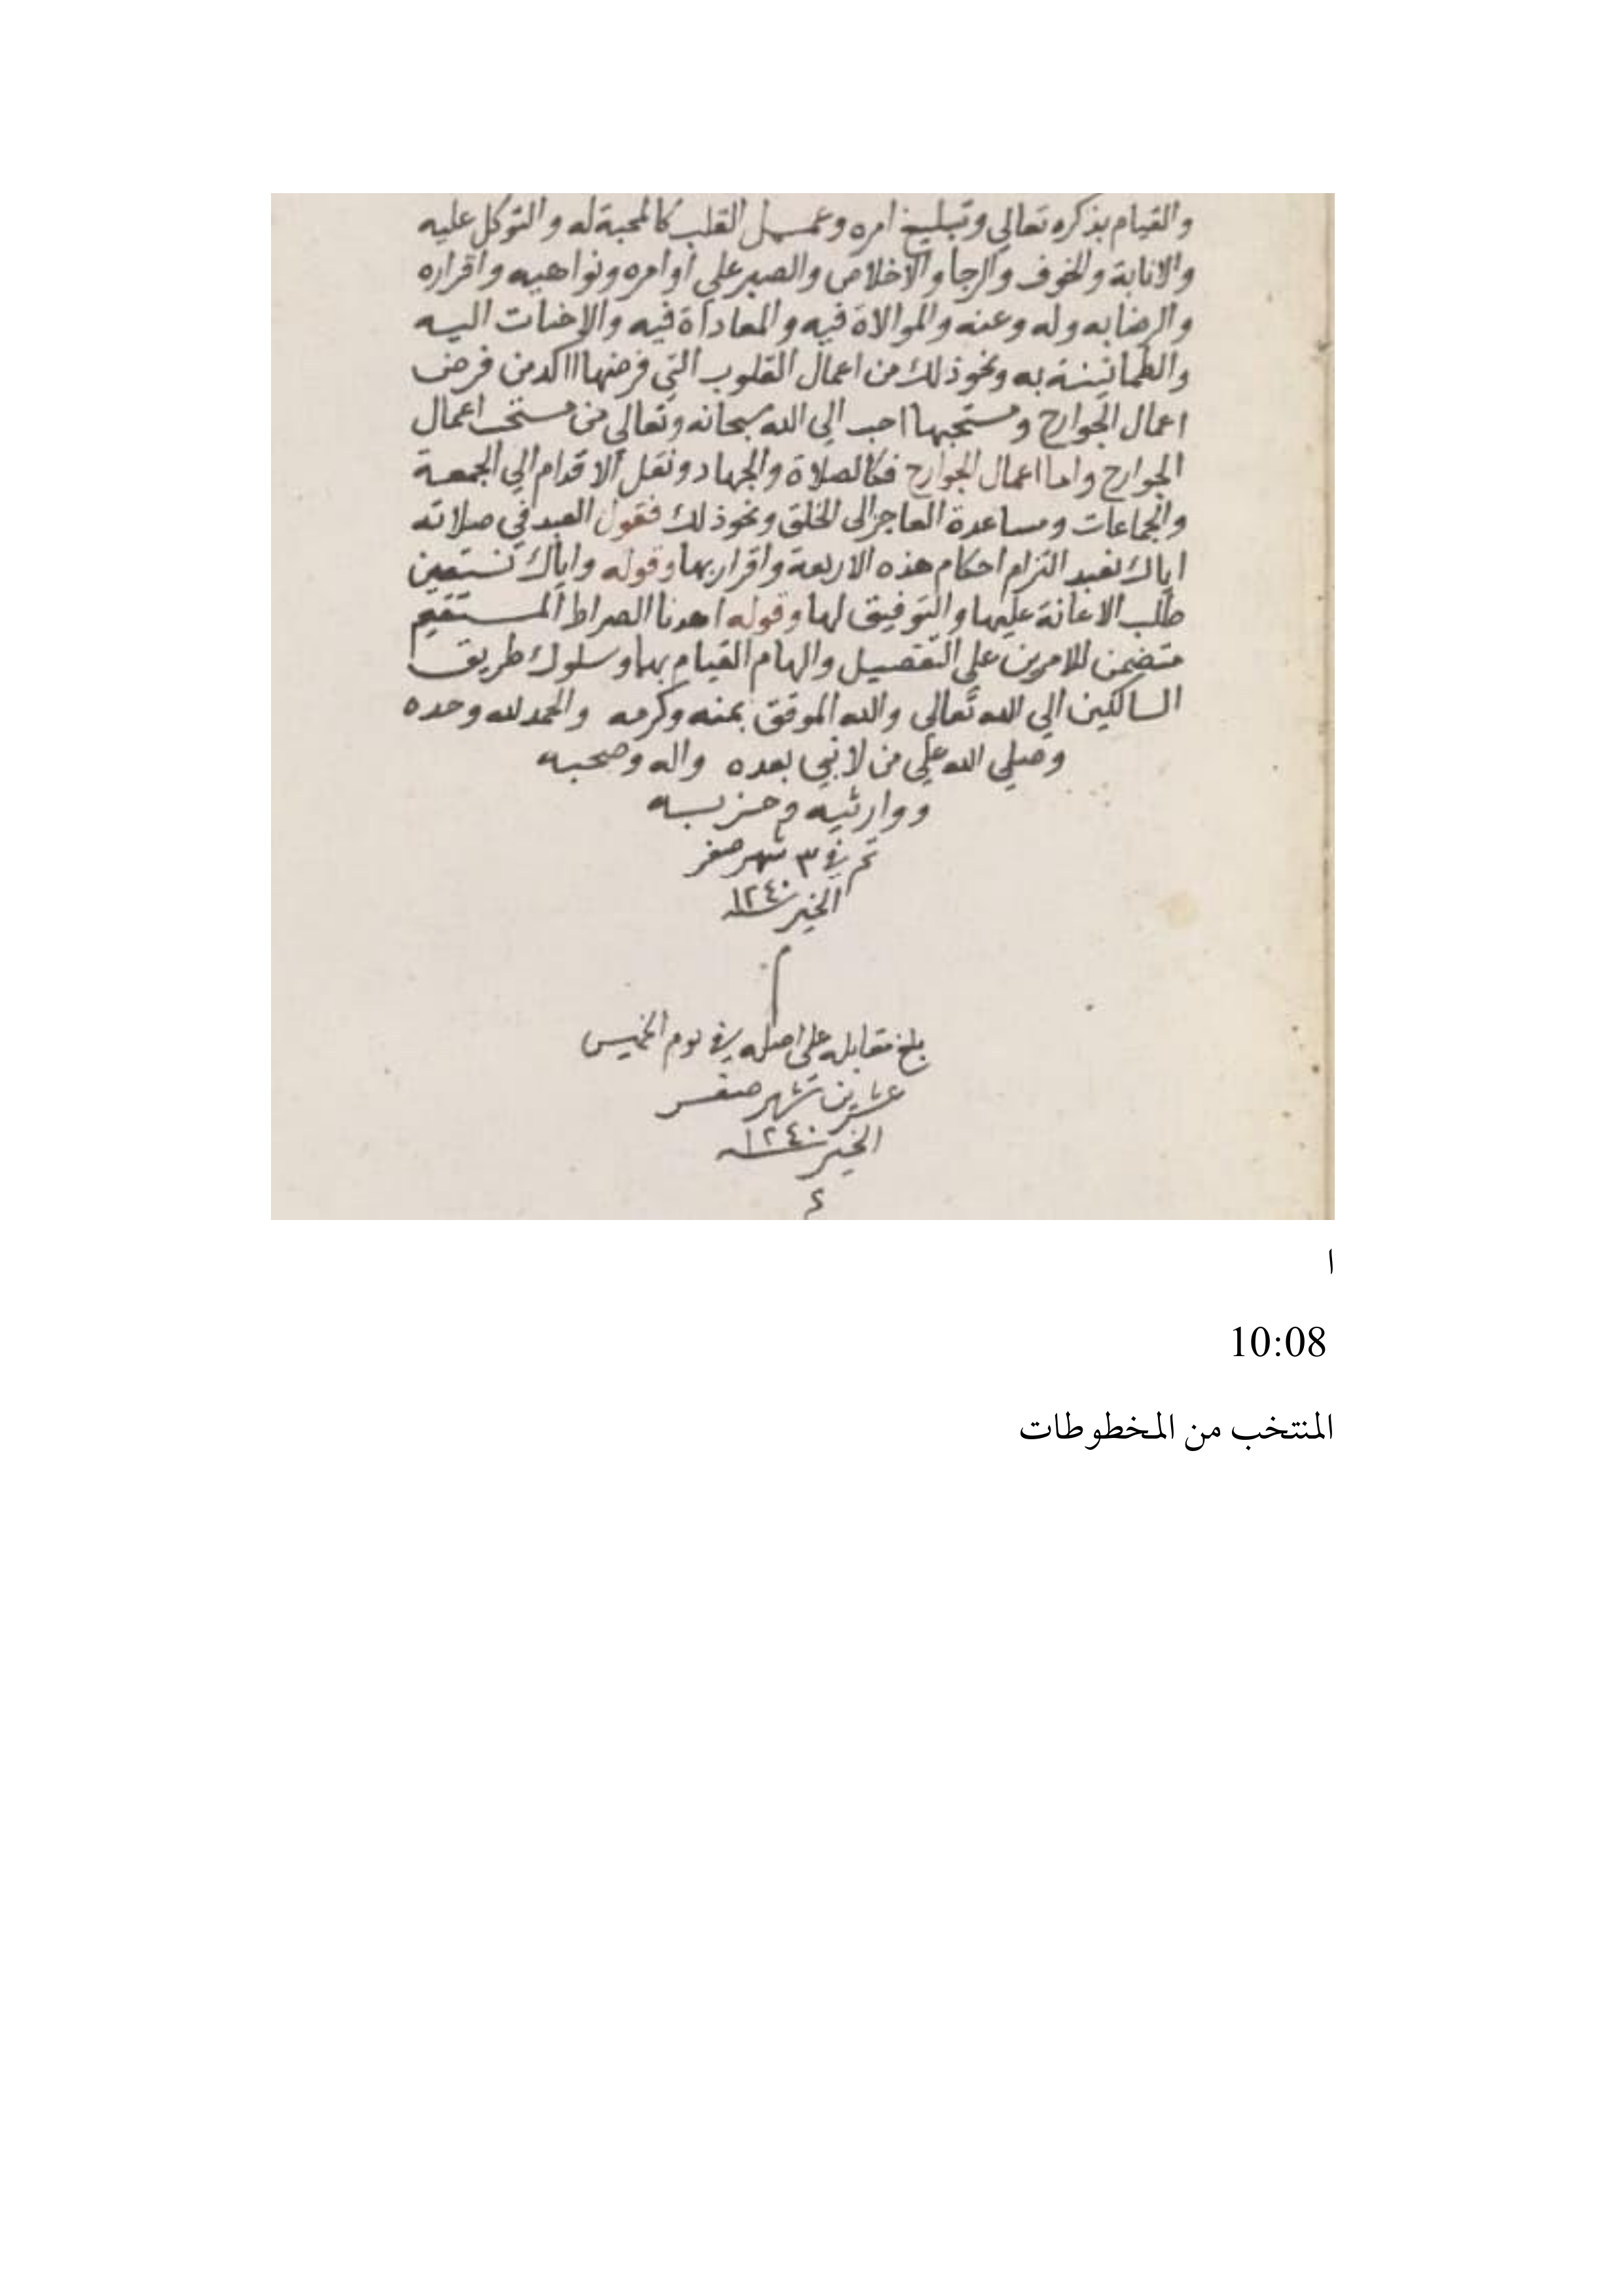 والقيام بذكره تعالي وتبليغ امره وعمل القلب كالمحبة له والتوكل عليه
والانابة والخوف والرجا والاخلاص والصبر علي اوامره ونواهيه واقراره
والرضا به وله وعنه والموالاة فيه والمعاداة فيه والاخبات اليه
والطمانينة به ونحو ذلك من اعمال القلوب التي فرضها ااكد من فرض
اعمال الجوارح ومستحبها احب الي الله سبحانه وتعالي من مستحب اعمال
الجوارح واما اعمال الجوارح فكالصلاة والجهاد ونقل الاقدام الي الجمعة
والجماعات ومساعدة العاجز الى الخلق ونحو ذلك فقول العبد في صلاته
اياك نعبد التزام احكام هذه الاربعة واقرار بها وقوله واياك نستعين
طلب الاعانة عليها والتوفيق لها وقوله اهدنا الصراط المستقيم
متضمن للامرين علي التفصيل والهام القيام بهما وسلوك طريق
السالكين الي الله تعالى والله الموفق بمنه وكرمه والحمد لله وحده
وصلي الله علي من لا نبي بعده واله وصحبه
ووارثيه وحزبه
تم في ٣ شهر صفر
الخير سنة ١٢٤٠
م
بلغ مقابله على اصله في يوم الخميس
عشرين شهر صفر
الخير سنة ١٢٤٠
ا
10:08
المنتخب من المخطوطات